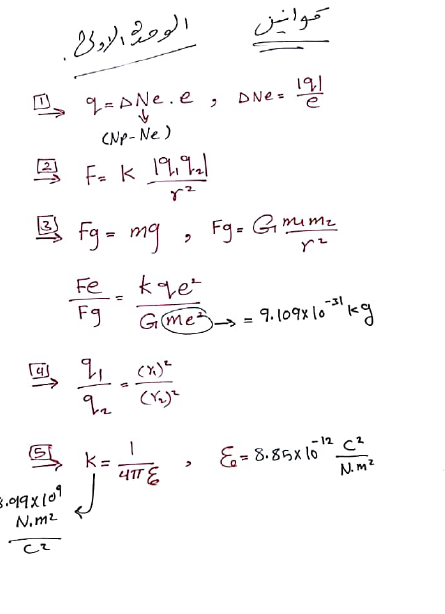 قوانين الوحدة الاولى.
1 q = ΔNe . e , ΔNe = |q| / e
(Np - Ne)
2 F = K |q₁q₂| / r²
3 Fg = mg , Fg = G m₁m₂ / r²
Fe / Fg = k qe² / G me² → = 9.109 x 10⁻³¹ kg
4 q₁ / q₂ = (r₁)² / (r₂)²
5 k = 1 / 4π ε₀ , ε₀ = 8.85 x 10⁻¹² C² / N.m²
.919 x 10⁹
N.m²
C²